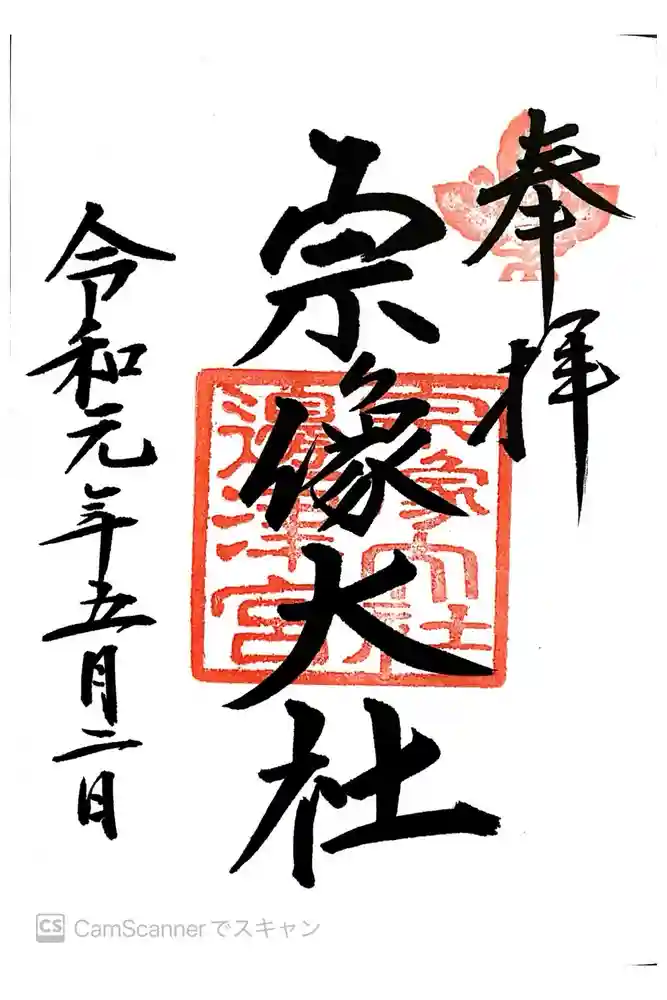 奉拝
宗像大社
宗像大社
邊津宮
令和元年五月二日
CS CamScannerでスキャン